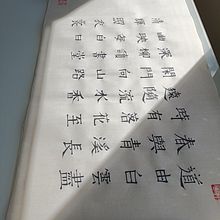 道由白雲盡
春與青溪長
時有落花至
遠隨流水香
閑門向山路
深柳讀書堂
幽映每白日
清輝照衣裳